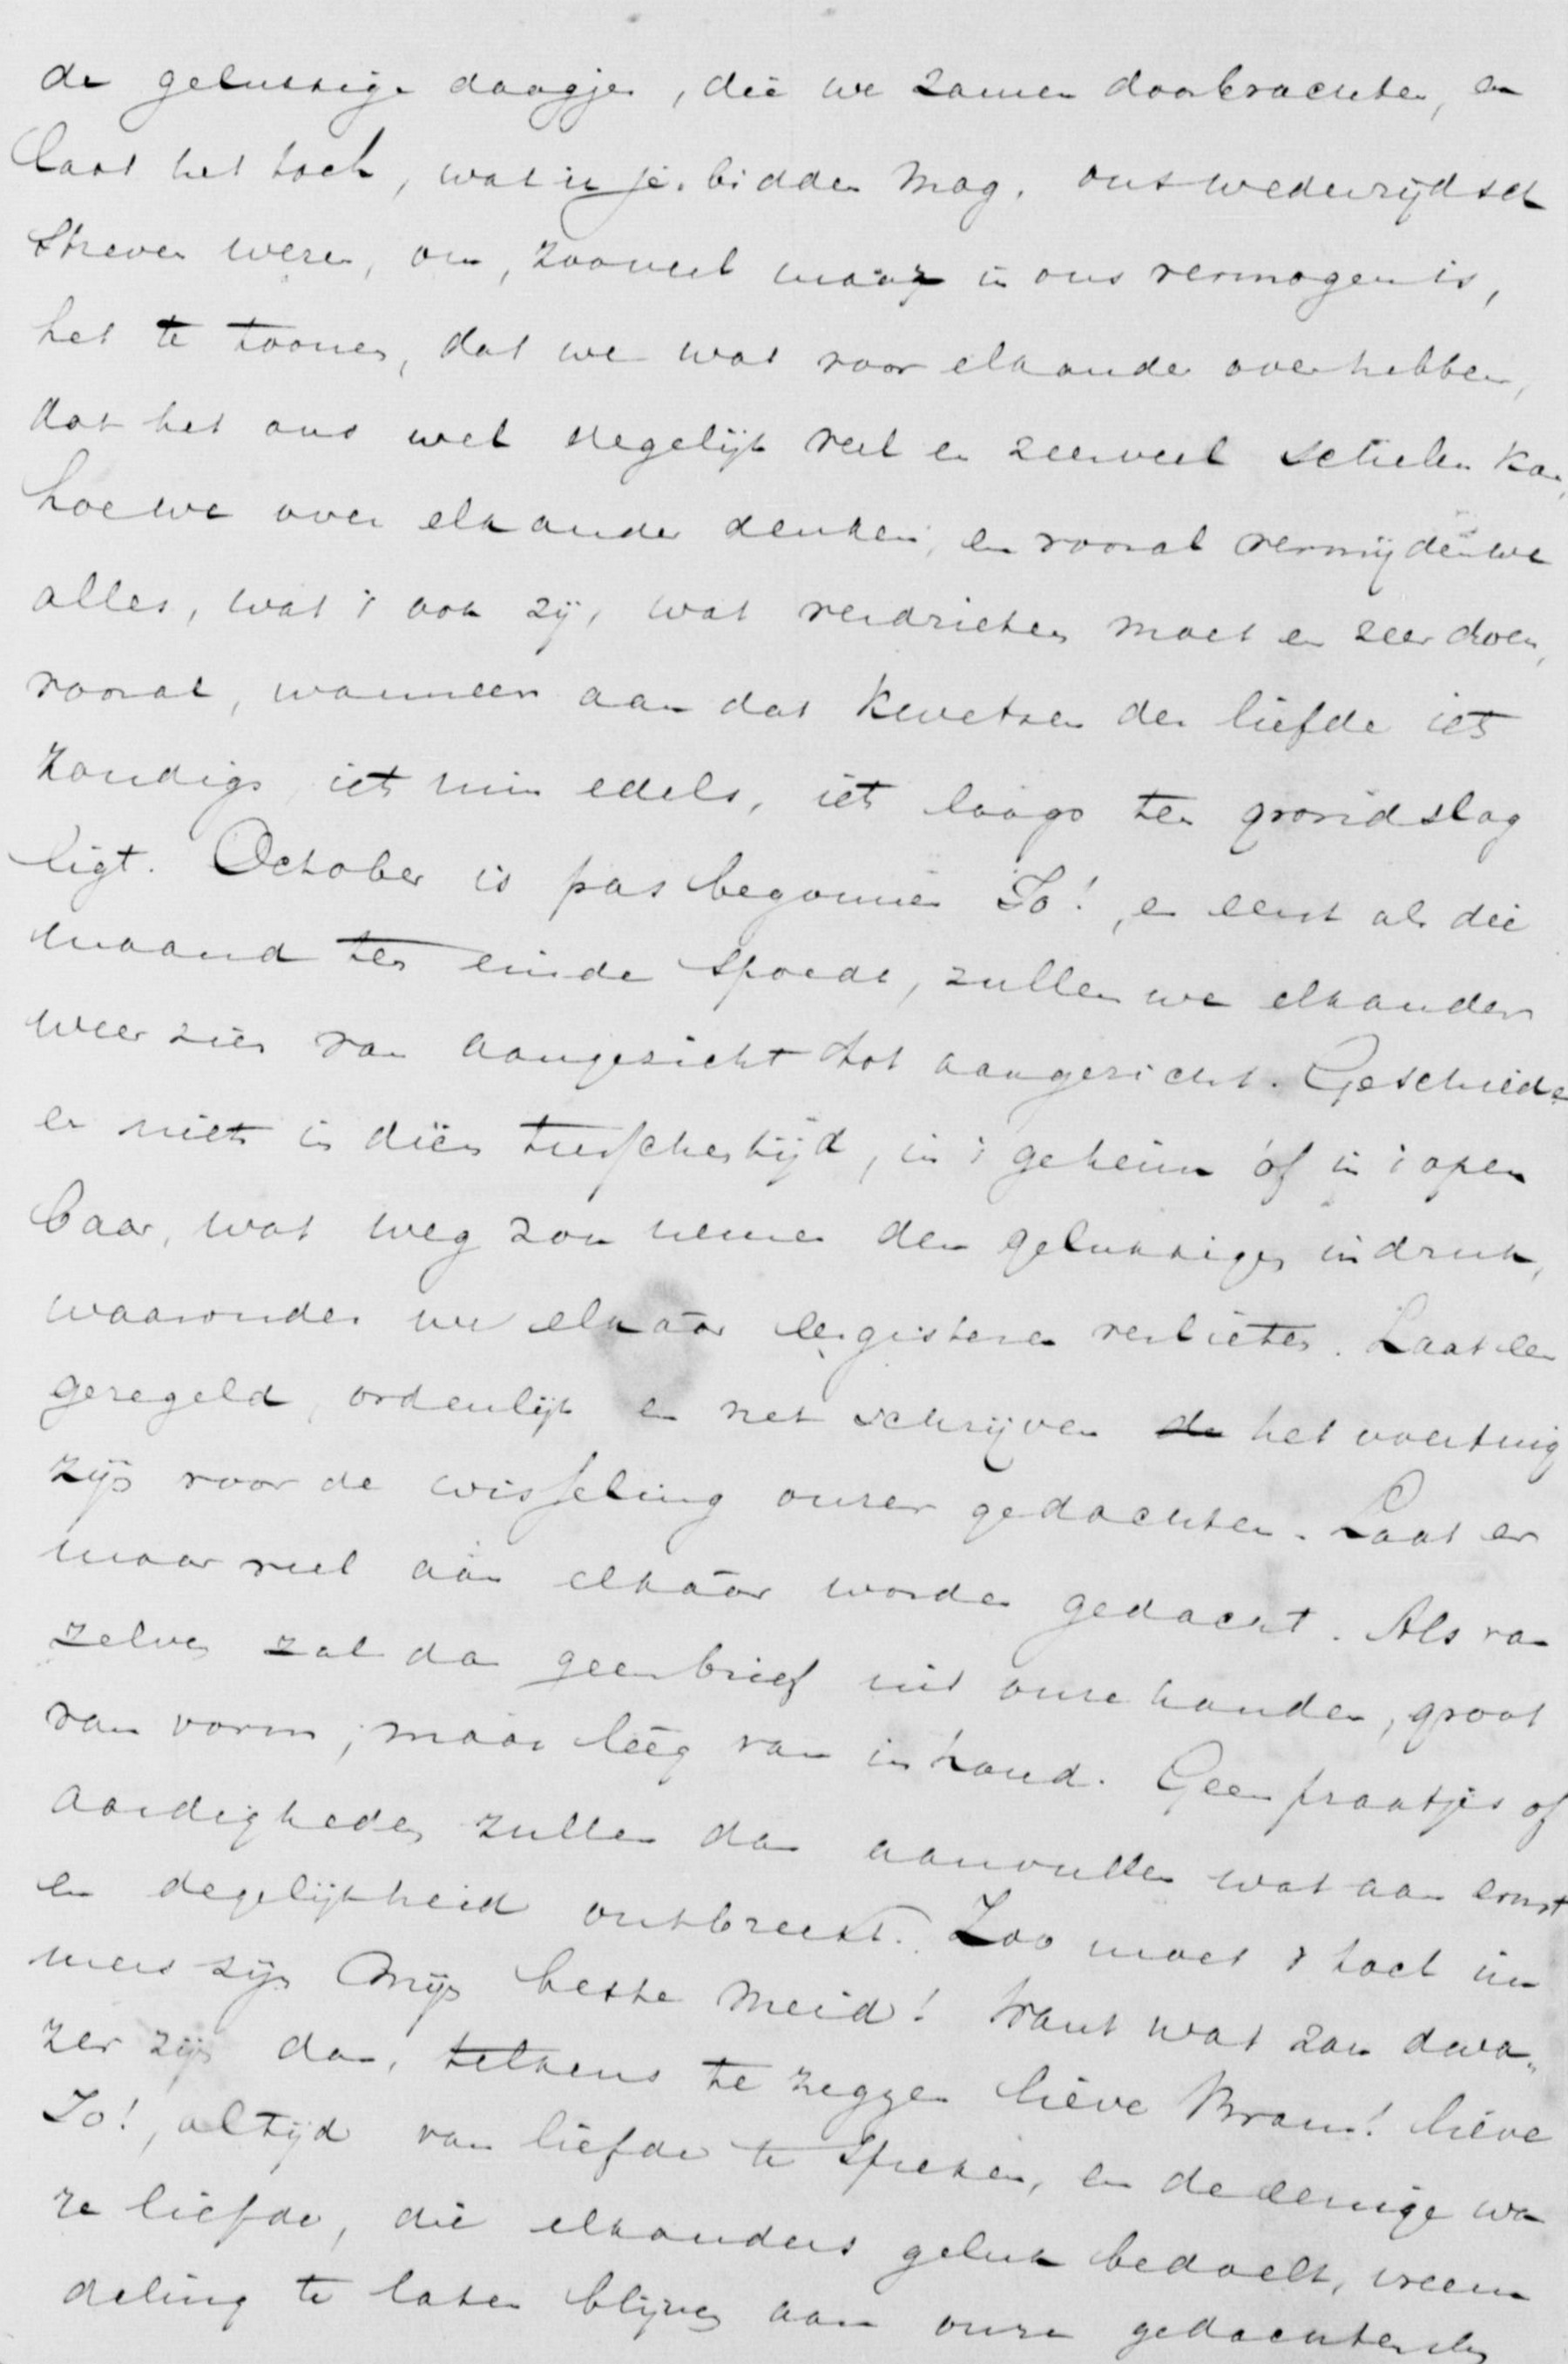 de gelukkige daagjes, die we zamen doorbrachten, en
laat het toch, wat ik je bidden mag, ons wederzijdsch
streven wezen, om, zooveel maar in ons vermogen is,
het te toonen, dat we wat voor elkander overhebben,
dat het ons wel degelijk veel en zeerveel schelen kan,
hoe we over elkander denken, en vooral vermijden we
alles, wat 't ook zij, wat verdrieten moet en zeer doen,
vooral, wanneer aan dat kwetsen der liefde iets
zondigs, iets min edels, iets laags ten grondslag
ligt. October is pas begonnen Jo!, en eerst als die
maand ten einde spoedt, zullen we elkander
weer zien van aangezicht tot aangezicht. Geschiede
er niets in dien tusschentijd, in 't geheim of in 't open
baar, wat weg zou nemen den gelukkigen indruk,
waaronder we elkaar eergisteren verlieten. Laat een
geregeld, ordenlijk en net schrijven de het voertuig
zijn voor de wisseling onzer gedachten. Laat er
maar veel aan elkaar worden gedacht. Als van
zelven zal dan geen brief uit onze handen, groot
van vorm, maar leeg van inhoud. Geen praatjes of
aardigheden zullen dan aanvullen wat aan ernst
en degelijkheid ontbreekt. Zoo moet 't toch im
mers zijn Mijn beste meid! Want wat zou dwa„
zer zijn dan, telkens te zeggen lieve Bram! lieve
Jo!, altijd van liefde te spreken, en de eenige wa
re liefde, die elkanders geluk bedoelt, vreem
deling te laten blijven aan onze gedachten en